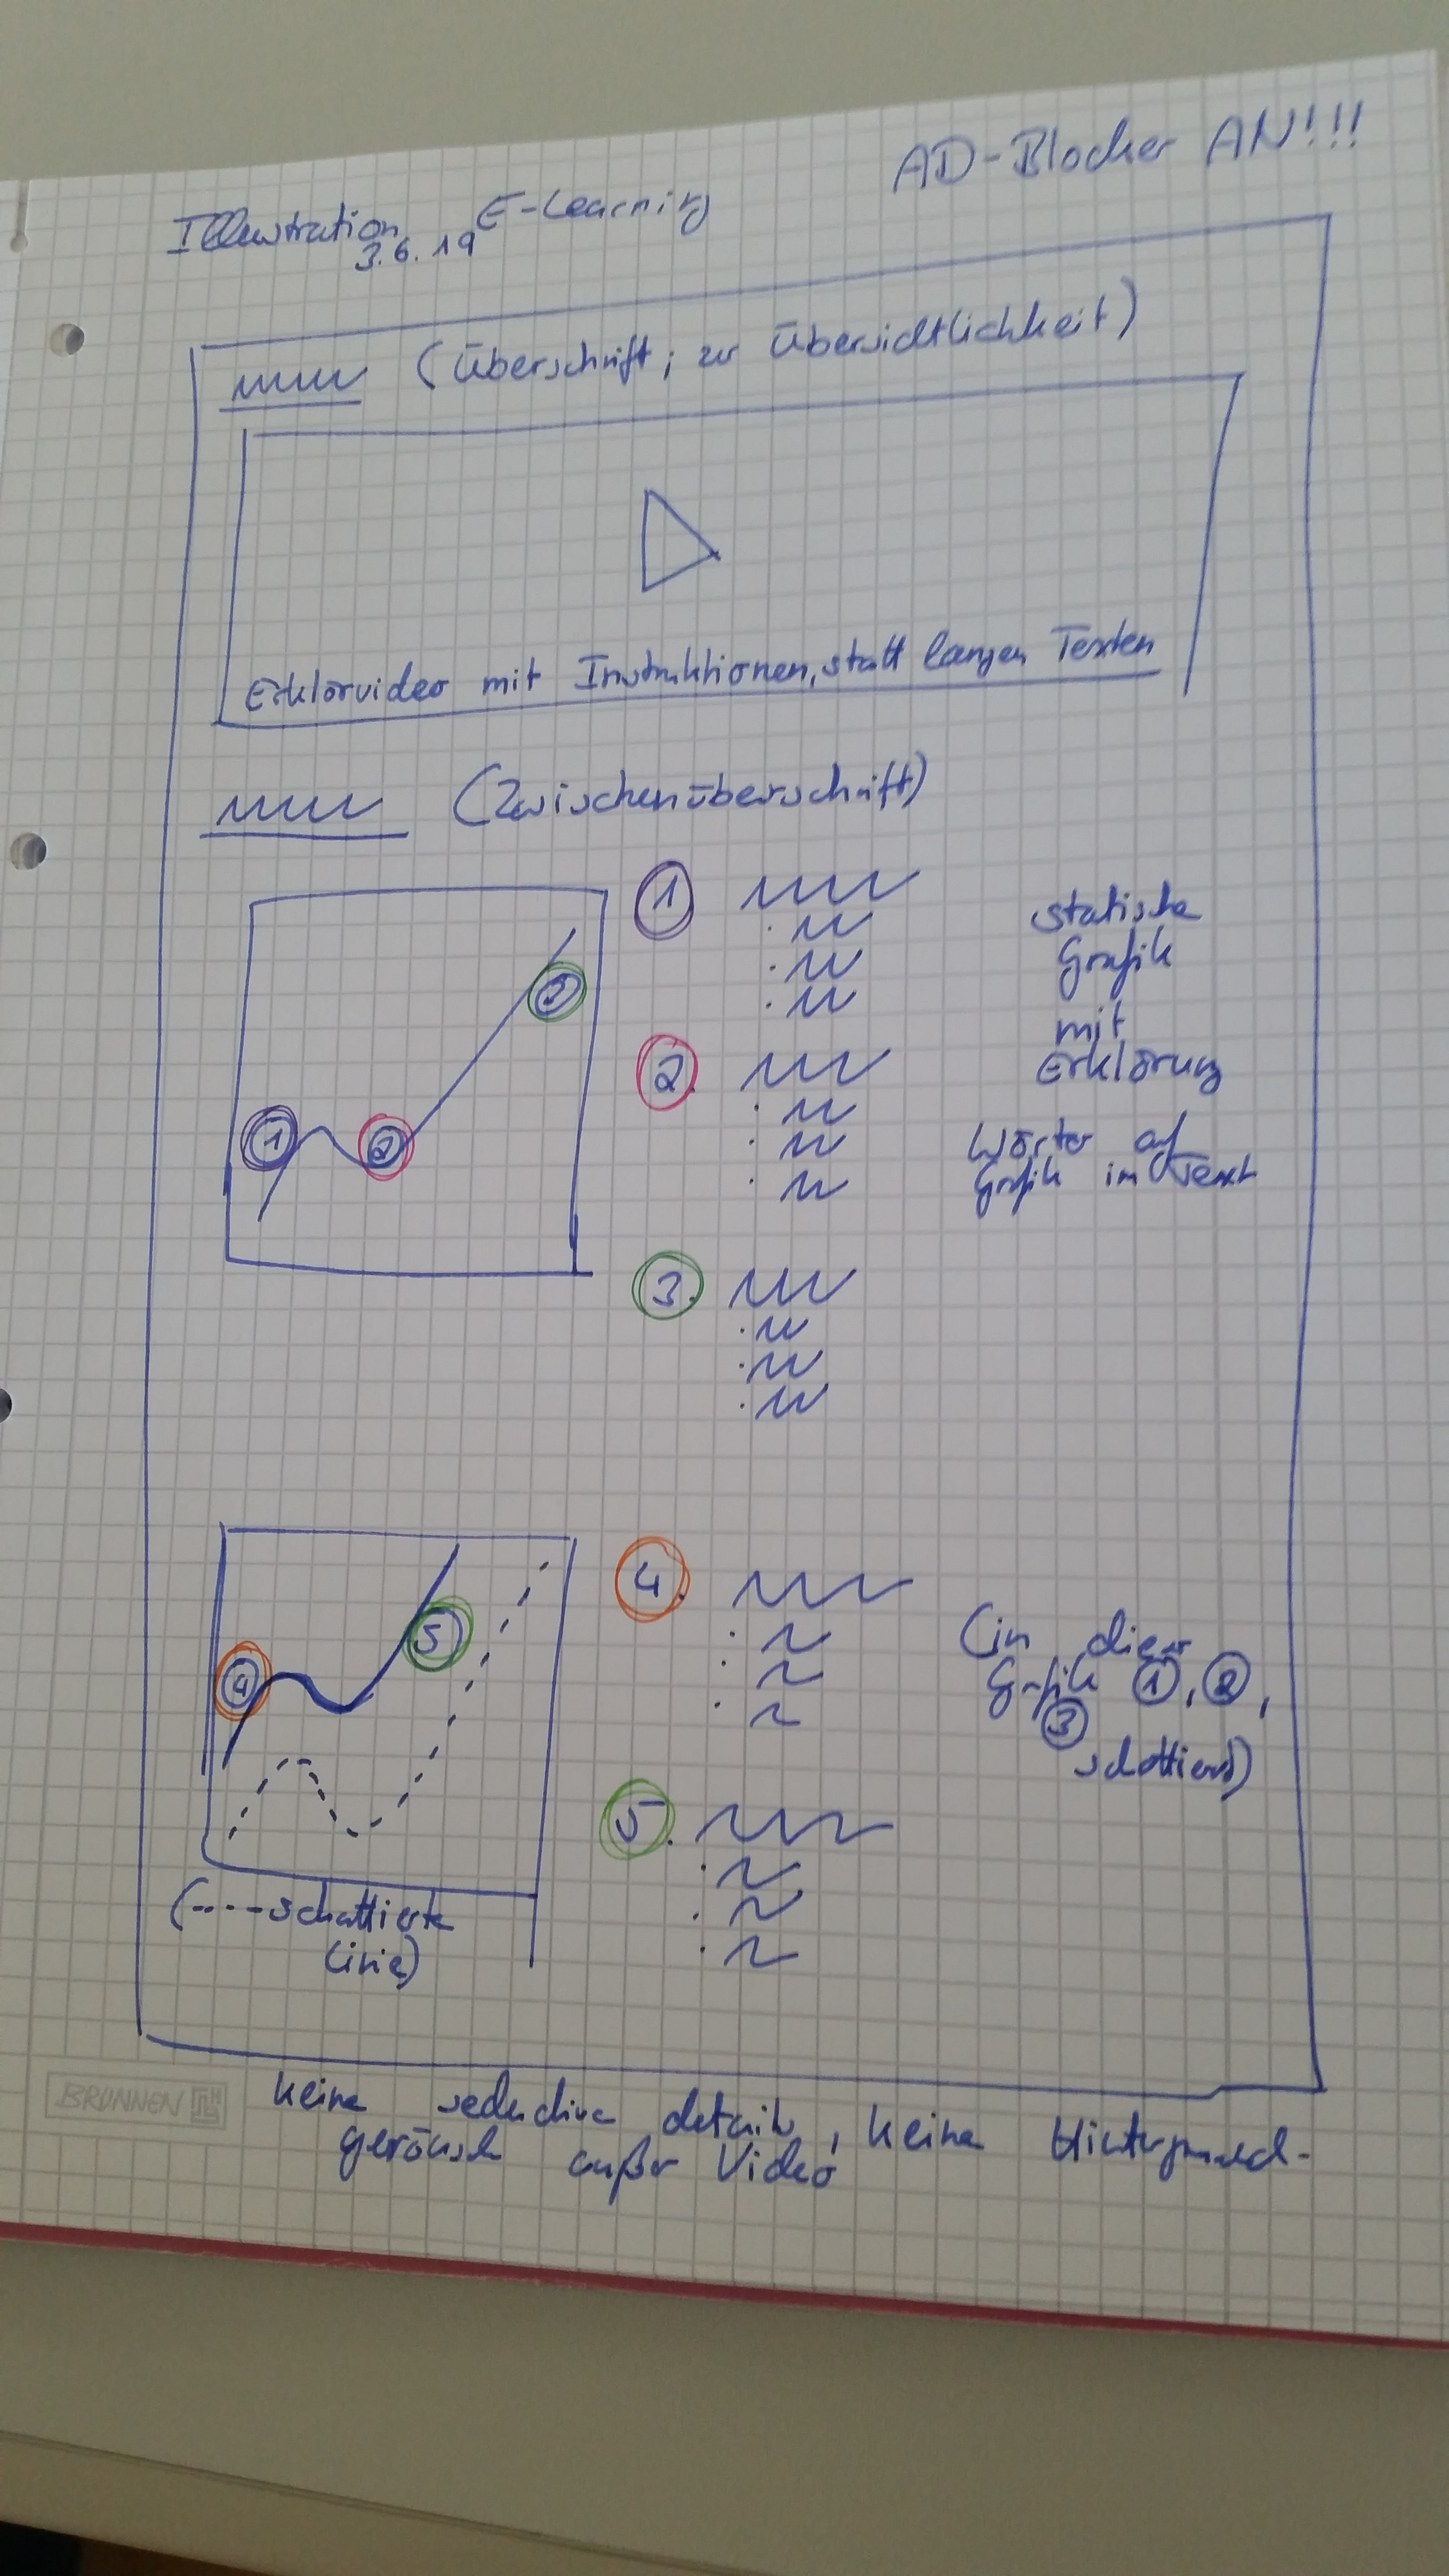 AD-Blocker AN!!!
Illustration E-Learning
3.6.19
(Überschrift; zur Übersichtlichkeit)
Erklärvideo mit Instruktionen, statt langen Texten
(Zwischenüberschrift)
1
2
3
1
2.
3.
statische
Grafik
mit
Erklärung
Wörter auf
Grafik im Text
4
5
4.
5.
(in dieser
Grafik 1, 2,
3
schattiert)
(----schattierte
Linie)
BRUNNEN
keine seductive details, keine Hintergrund-
geräusch außer Video